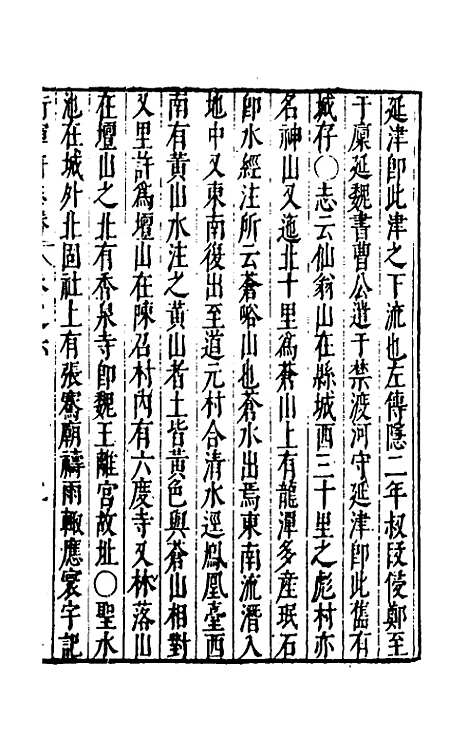 延津卽此津之下流也左傳隱二年叔段侵鄭至
于廩延魏書曹公遣于禁渡河守延津卽此舊有
城存〇志云仙翁山在縣城西三十里之彪村亦
名神山又迤北十里爲蒼山上有龍潭多産珉石
卽水經注所云蒼峪山也蒼水出焉東南流潛入
地中又東南復出至道元村合清水逕鳳凰臺西
南有黃山水注之黃山者土皆黃色與蒼山相對
又里許爲壇山在陳召村內有六度寺又林落山
在壇山之北有香泉寺卽魏王離宮故址〇聖水
池在城外北固社上有張騫廟禱雨輒應寰宇記